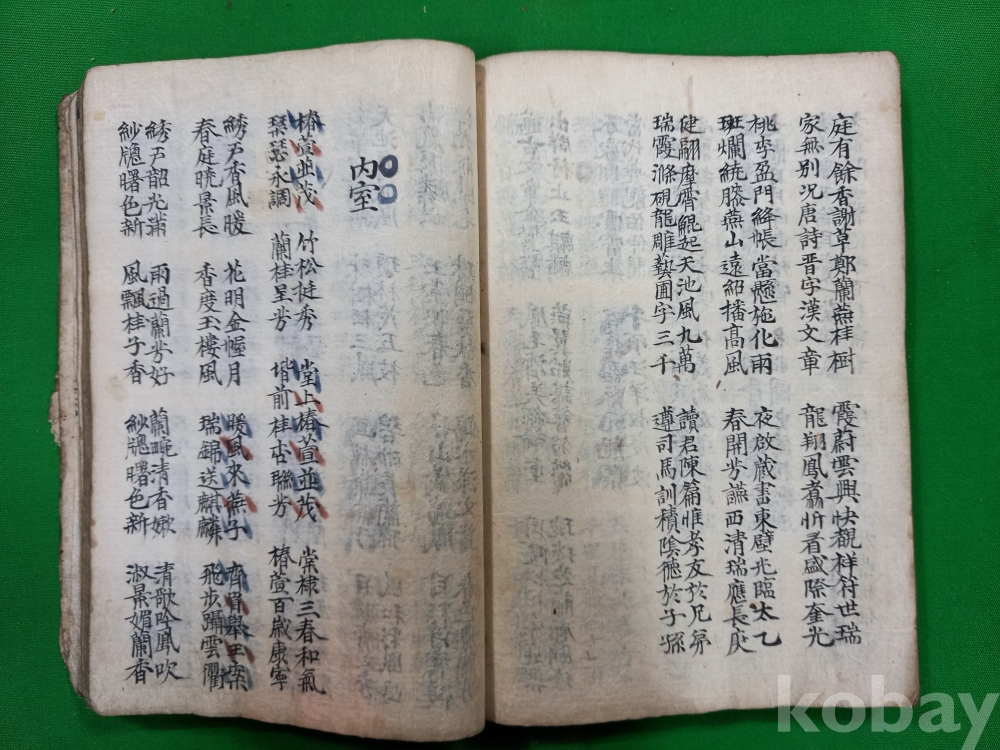 庭有餘香謝草鄭蘭燕桂樹 霞蔚雲興快覩祥符世瑞
家無別況唐詩晋字漢文章 龍翔鳳翥忻看盛際奎光
桃李盈門絳帳當懸施化雨 夜啟藏書東壁光臨太乙
斑爛繞膝燕山遠紹播高風 春開芳讌西清瑞應長庚
健翮摩霄鯤起天池風九萬 讀君陳篇惟孝友於兄弟
瑞霞滌硯龍雕藝圃字三千 遵司馬訓積陰德於子孫
内室
椿萱並茂 竹松挺秀 堂上椿萱並茂 棠棣三春和氣
琹瑟永調 蘭桂呈芳 堦前桂杏聯芳 椿萱百歲康寧
綉户香風暖 花明金幄月 暖風來燕子 齊眉舉玉案
春庭晓景長 香度玉樓風 瑞錦送麒麟 飛步躡雲衢
綉户韶光滿 雨過蘭芽好 蘭畹清香嫩 清歌吟鳳吹
紗牕曙色新 風飄桂子香 紗牕曙色新 淑景媚蘭香
kobay